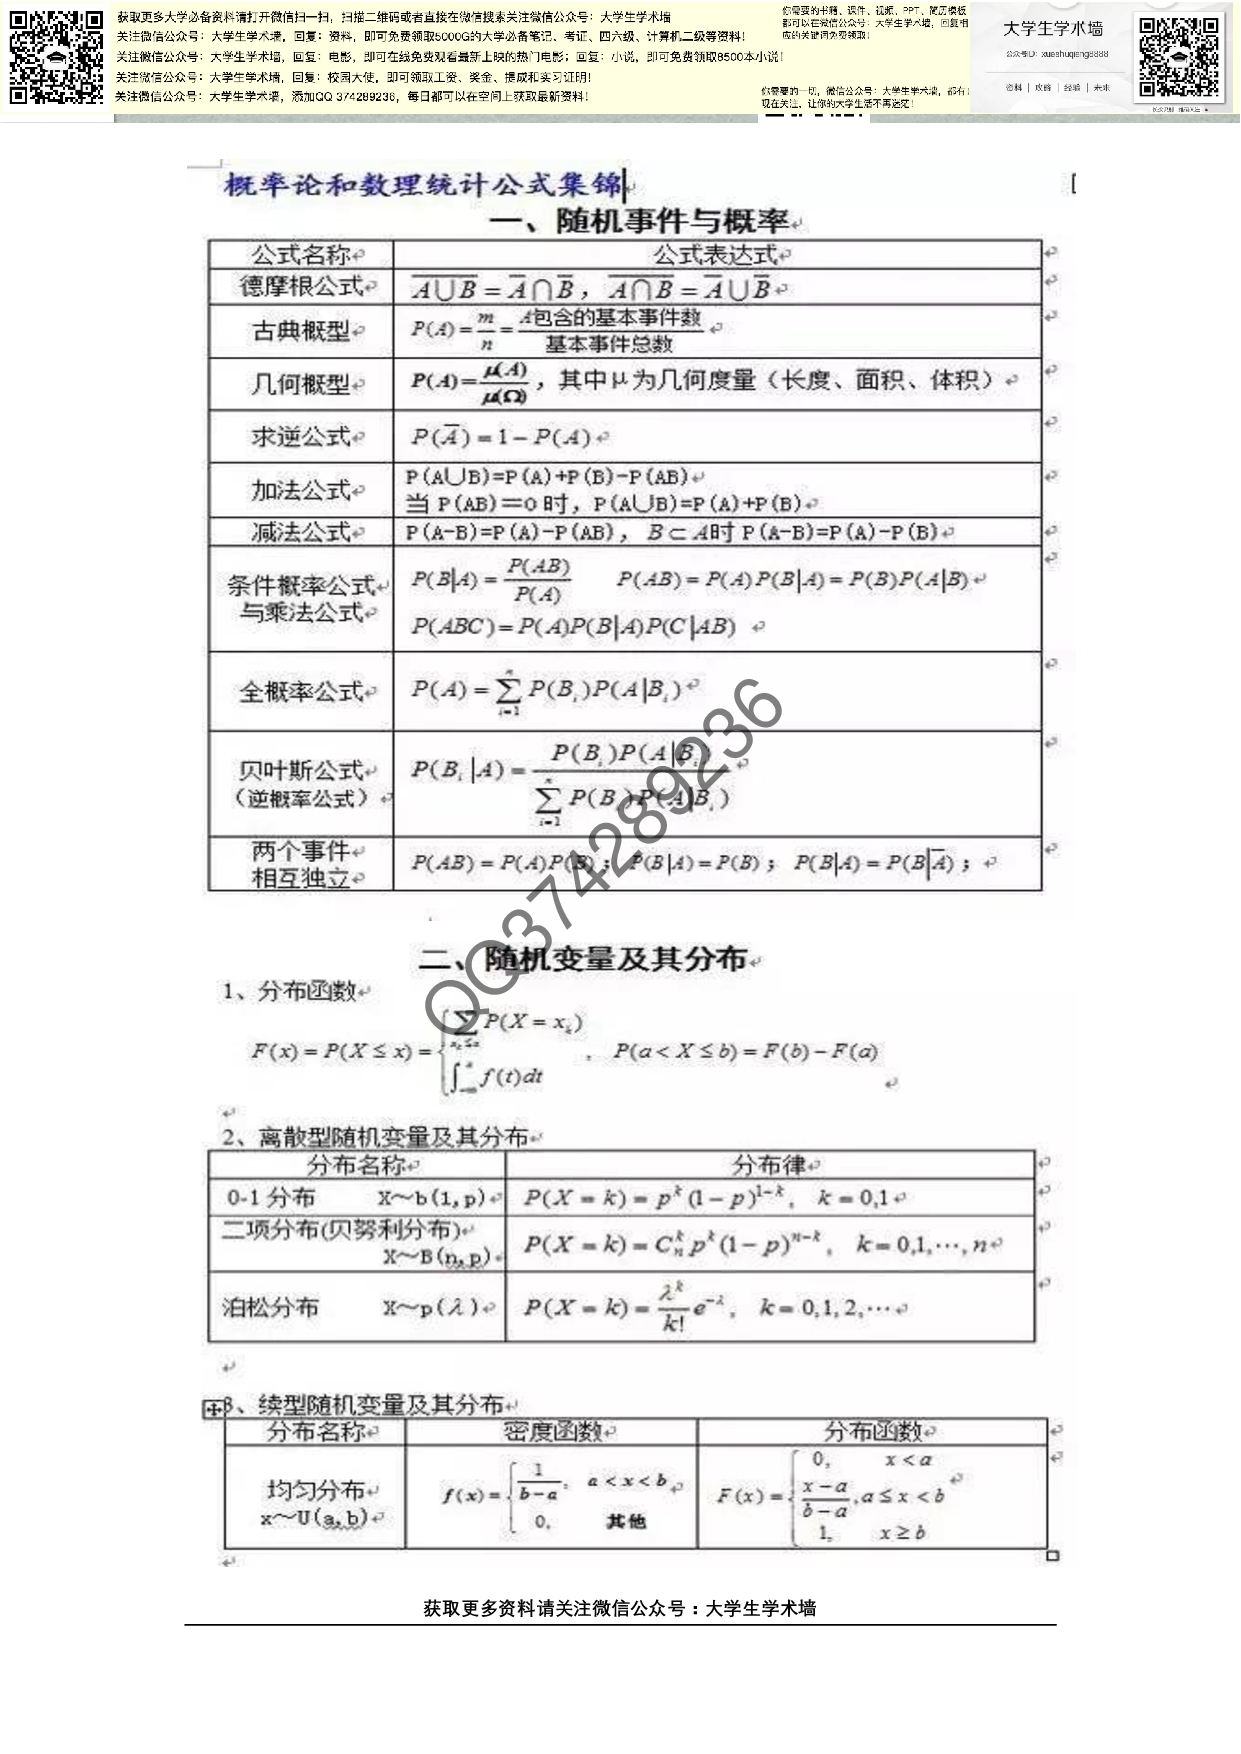 获取更多大学必备资料请打开微信扫一扫，扫描二维码或者直接在微信搜索关注微信公众号：大学生学术墙
关注微信公众号：大学生学术墙，回复：资料，即可免费领取5000G的大学必备笔记、考证、四六级、计算机二级等资料！
关注微信公众号：大学生学术墙，回复：电影，即可在线免费观看最新上映的热门电影；回复：小说，即可免费领取8500本小说！
关注微信公众号：大学生学术墙，回复：校园大使，即可领取工资、奖金、提成和实习证明！
关注微信公众号：大学生学术墙，添加QQ 374289236，每日都可以在空间上获取最新资料！
你需要的书籍、课件、视频、PPT、简历模板
都可以在微信公众号：大学生学术墙，回复相
应的关键词免费领取！
你需要的一切，微信公众号：大学生学术墙，都有！
现在关注，让你的大学生活不再迷茫！
大学生学术墙
公众号ID：xueshuqiang8888
资料 | 攻略 | 经验 | 未来
概率论和数理统计公式集锦
一、随机事件与概率
公式名称 公式表达式
德摩根公式 \overline{A∪B} = \overline{A}∩\overline{B}，\overline{A∩B} = \overline{A}∪\overline{B}
古典概型 P(A) = m/n = A包含的基本事件数/基本事件总数
几何概型 P(A) = μ(A)/μ(Ω)，其中μ为几何度量（长度、面积、体积）
求逆公式 P(\overline{A}) = 1 − P(A)
加法公式 P(A∪B)=P(A)+P(B)-P(AB)
当 P(AB)＝0 时，P(A∪B)=P(A)+P(B)
减法公式 P(A-B)=P(A)-P(AB)，B⊂A时 P(A-B)=P(A)-P(B)
条件概率公式与乘法公式 P(B|A) = P(AB)/P(A) P(AB) = P(A)P(B|A) = P(B)P(A|B)
P(ABC) = P(A)P(B|A)P(C|AB)
全概率公式 P(A) = \sum_{i=1}^{n} P(B_i)P(A|B_i)
贝叶斯公式（逆概率公式） P(B_i|A) = P(B_i)P(A|B_i) / \sum_{i=1}^{n} P(B_i)P(A|B_i)
两个事件相互独立 P(AB) = P(A)P(B)；P(B|A) = P(B)；P(B|A) = P(B|\overline{A})；
QQ374289236
二、随机变量及其分布
1、分布函数
F(x) = P(X ≤ x) = { \sum_{x_k≤x} P(X = x_k)
\int_{-∞}^{x} f(t)dt ，P(a < X ≤ b) = F(b) − F(a)
2、离散型随机变量及其分布
分布名称 分布律
0-1 分布 X～b(1,p) P(X = k) = p^k(1 − p)^{1−k}, k = 0,1
二项分布(贝努利分布) X～B(n,p) P(X = k) = C_n^k p^k(1 − p)^{n−k}, k = 0,1,⋯,n
泊松分布 X～p(λ) P(X = k) = λ^k/k! e^{−λ}, k = 0,1,2,⋯
3、续型随机变量及其分布
分布名称 密度函数 分布函数
均匀分布 x～U(a,b) f(x) = { 1/(b−a), a < x < b
0, 其他 F(x) = { 0, x < a
(x−a)/(b−a), a ≤ x < b
1, x ≥ b
获取更多资料请关注微信公众号：大学生学术墙